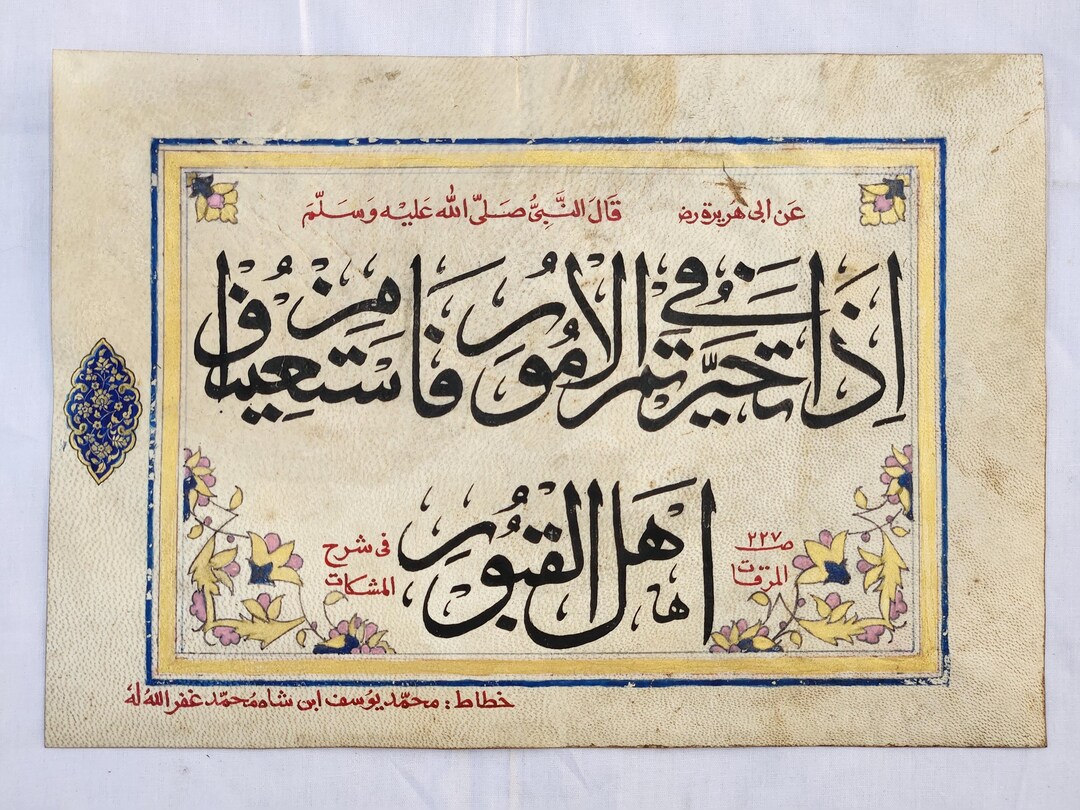 عَن ابی هریرة رض قَالَ النَّبِیُّ صَلَّی اللّٰه عَلَیْه وَسَلَّمَ
اِذَا تَحَیَّرتم فِی الاُمُورِ فَاسْتَعِینُوا مِنْ
اَهلِ القُبُورِ
صـ ٢٢٧
المرقات
فی شرح
المشکات
خطاط: محمّد یوُسف ابن شاه محمّد غفر اللّٰه لهُ